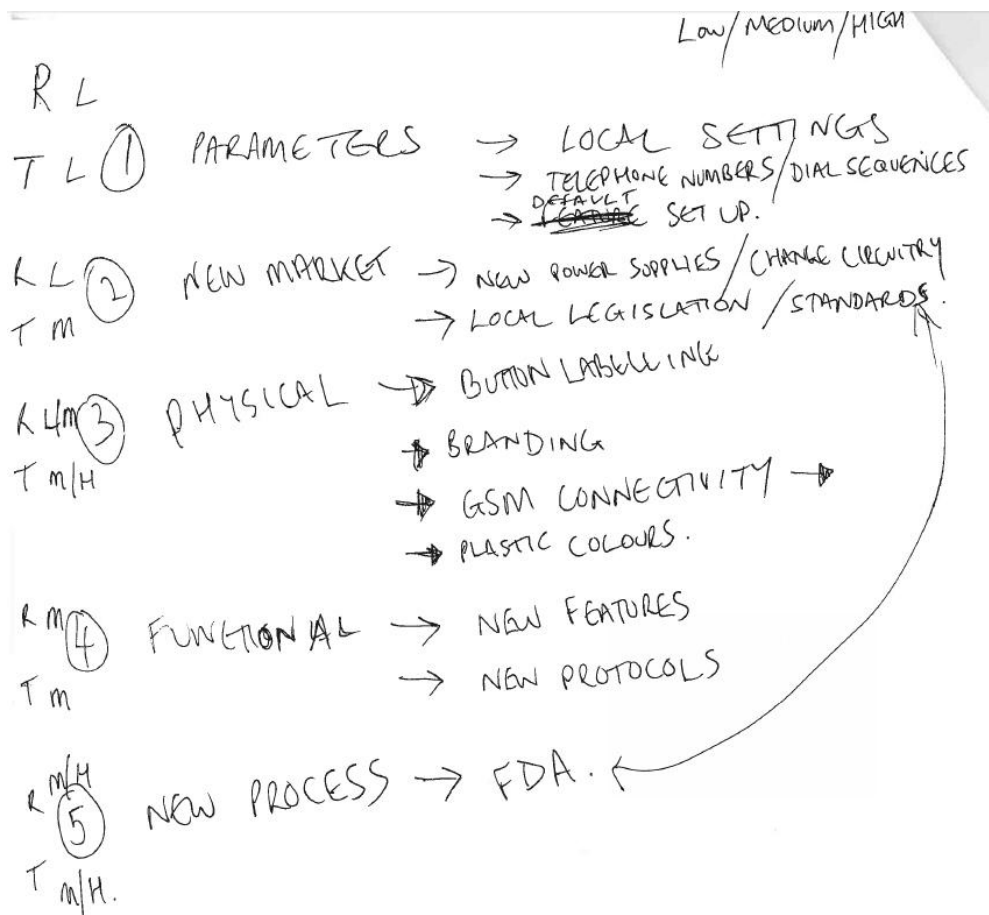 LOW/MEDIUM/HIGH
R L
T L ① PARAMETERS → LOCAL SETTINGS
→ TELEPHONE NUMBERS/DIAL SEQUENCES
→ DEFAULT SET UP.
R L ② NEW MARKET → NEW POWER SUPPLIES/CHANGE CIRCUITRY
T M → LOCAL LEGISLATION/STANDARDS.
R L/M ③ PHYSICAL → BUTTON LABELLING
T M/H → BRANDING
→ GSM CONNECTIVITY →
→ PLASTIC COLOURS.
R M ④ FUNCTIONAL → NEW FEATURES
T M → NEW PROTOCOLS
R M/H ⑤ NEW PROCESS → FDA.
T M/H.